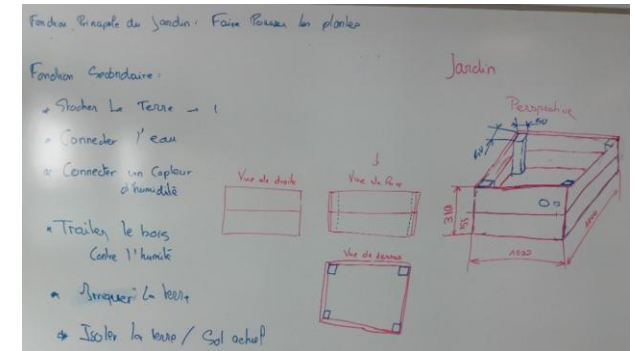 Fonction Principale du Jardin : Faire Pousser les plantes
Fonction Secondaire :
Stocker La Terre → 1
Connecter l'eau
Connecter un Capteur
d'humidité
Traiter le bois
Contre l'humité
La terre
Isoler la terre / Sol actuel
Jardin
Perspective
Vue de droite
Vue de Face
Vue de dessus
310
155
1000